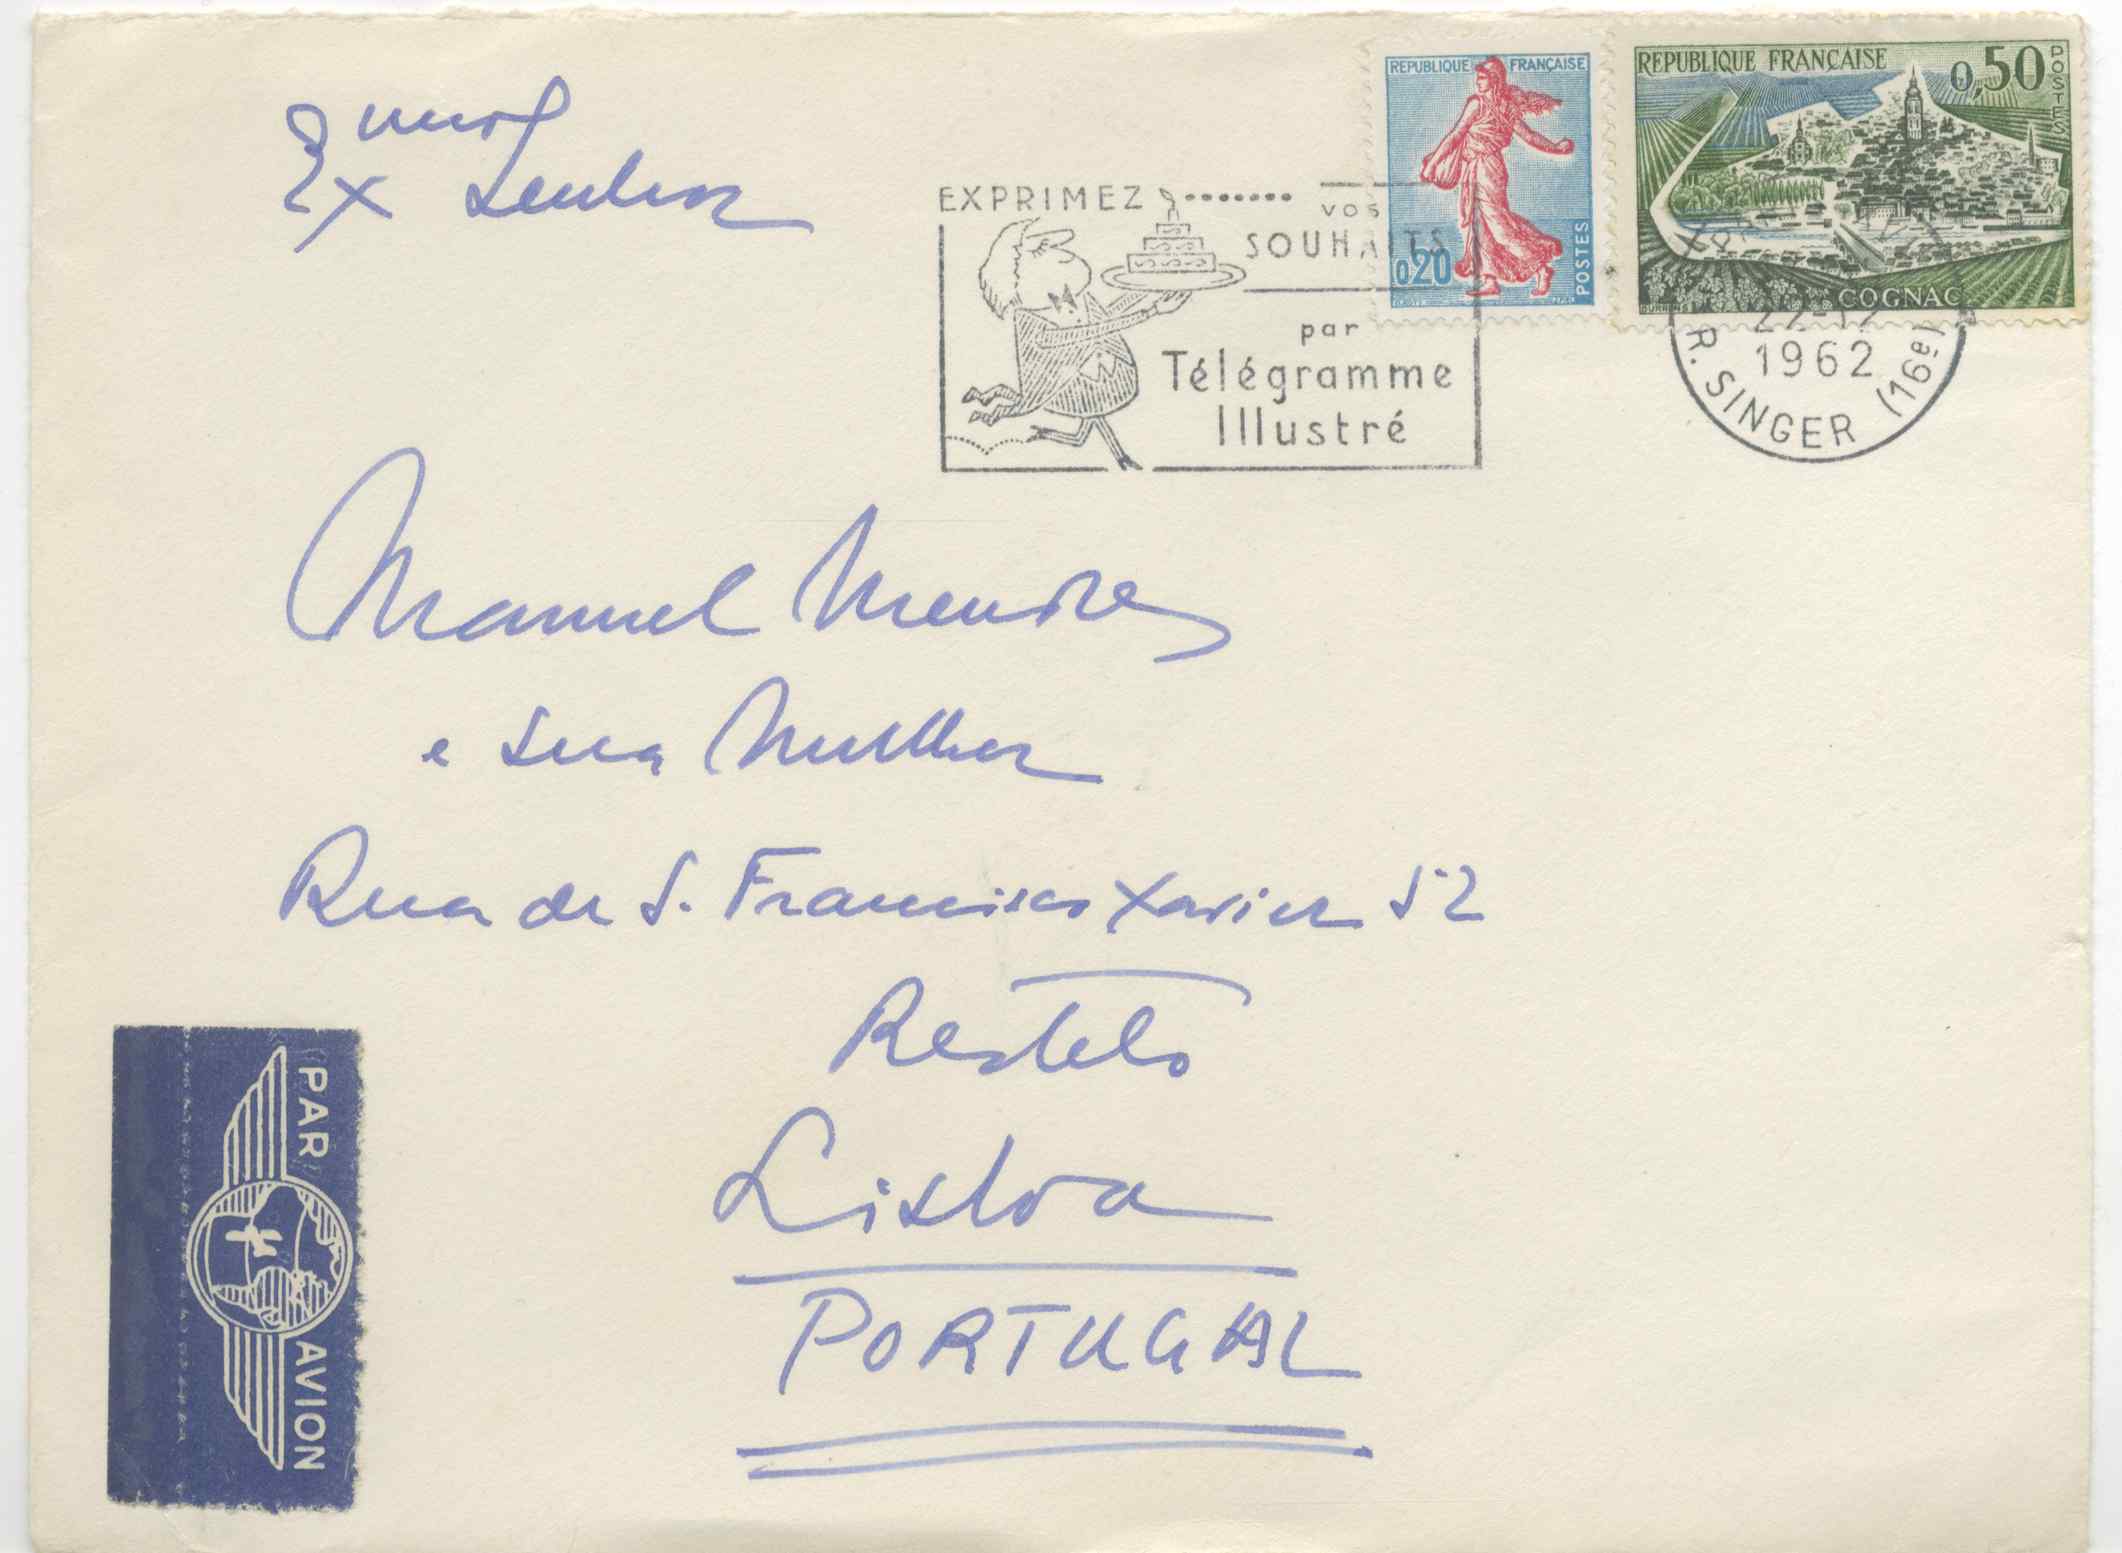 Exmo Senhor
EXPRIMEZ
VOS
SOUHAITS
par
Télégramme
Illustré
REPUBLIQUE FRANÇAISE
0,20
POSTES
REPUBLIQUE FRANÇAISE
0,50
POSTES
COGNAC
22-12
1962
R. SINGER (16e)
Manuel Mendes
e sua Mulher
Rua de S. Francisco Xavier 52
Restelo
Lisboa
PORTUGAL
PAR AVION